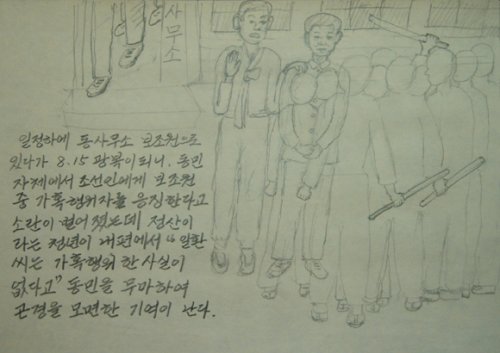 사무소
일정하에 동사무소 보조원으로
있다가 8.15 광복이되니. 동민
자제에서 조선인에게 보조원
중 가혹행위자를 응징한다고
소란이 벌어 졌는데 정산이
라는 청년이 내편에서 "일환
씨는 가혹행위 한사실이
없다고" 동민을 무마하여
곤경을 모면한 기억이 난다.